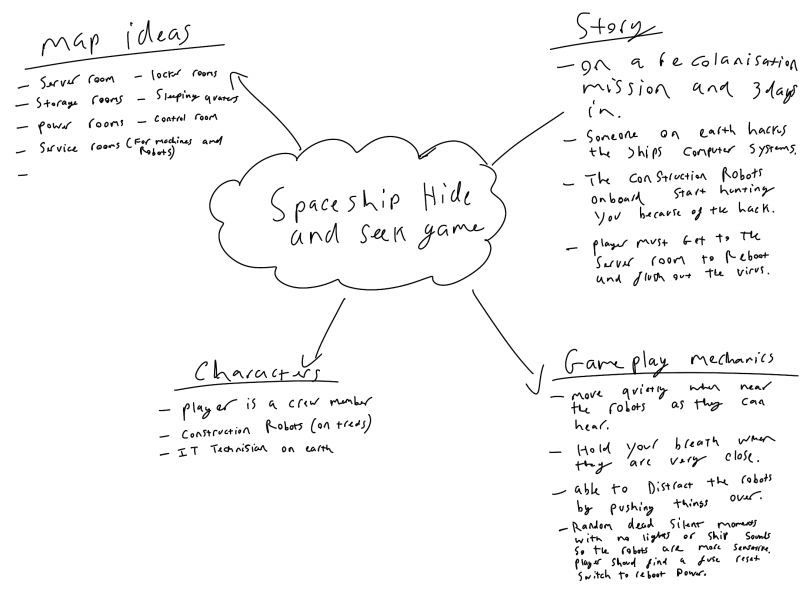 Map ideas
- Server room - locker rooms
- Storage rooms - Sleeping quaters
- Power rooms - Control room
- Service rooms (For machines and Robots)
-
Story
- On a recolanisation
mission and 3 days
in.
- Someone on earth hacks
the ships computer systems.
- The Construction Robots
onboard start hunting
you because of the hack.
- player must Get to the
Server room to Reboot
and flush out the virus.
Spaceship Hide
and seek game
Characters
- player is a crew member
- Construction Robots (on treds)
- IT Technisian on earth
Gameplay mechanics
- move quietly when near
the robots as they can
hear.
- Hold your breath when
they are very close.
- able to Distract the robots
by pushing things over.
- Random dead Silent moments
with no lights or ship Sounds
So the robots are more sensative.
player shoud find a fuse reset
Switch to reboot Power.